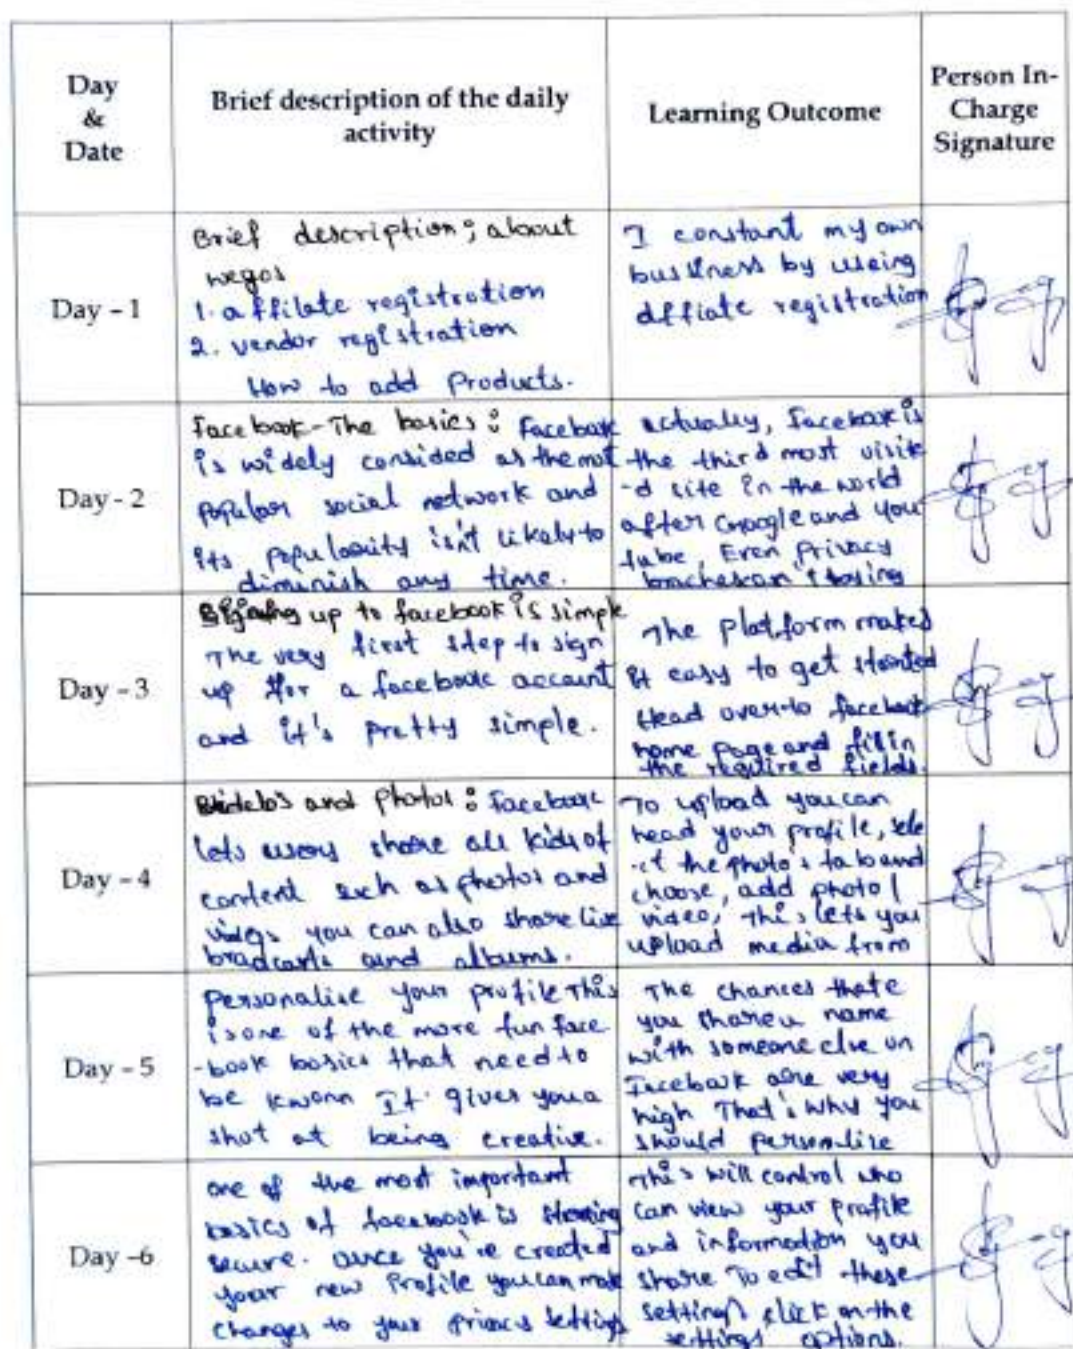 Day
&
Date
Brief description of the daily
activity
Learning Outcome
Person In-
Charge
Signature
Day - 1
Brief description; about
wegos
1. affilate registration
2. vendor registration
How to add Products.
I constant my own
bussiness by useing
affiate registration
Day - 2
Facebook-The basics: Facebook
is widely consided as the
popular social network and
its popularity isn't likely to
diminish any time.
actually, Facebook is
the third most visite
-d site in the world
after Google and you
tube Even Privacy
Day - 3
up to facebook is simple
The very first step to sign
up for a facebook account
and it's pretty simple.
The platform makes
it easy to get started
Head over to facebook
home page and fill in
the required fields.
Day - 4
and photos: Facebook
lets users share all kids of
content such as photos and
you can also share live
bradcasts and albums.
To upload you can
head your profile, sele
-ct the photo's tab and
choose, add photo/
video, this lets you
upload media from
Day - 5
Personalise your profile This
is one of the more fun face
-book basics that need to
be It gives you a
shot at being creative.
The chances
you name
with someone else on
Facebook are very
high That's why you
should
Day -6
one of the most important
basics of facebook is
secure. once you're created
your new Profile you can make
changes to your privacy settings
This will control who
can view your profile
and information you
share To edit these
settings click on the
settings options.